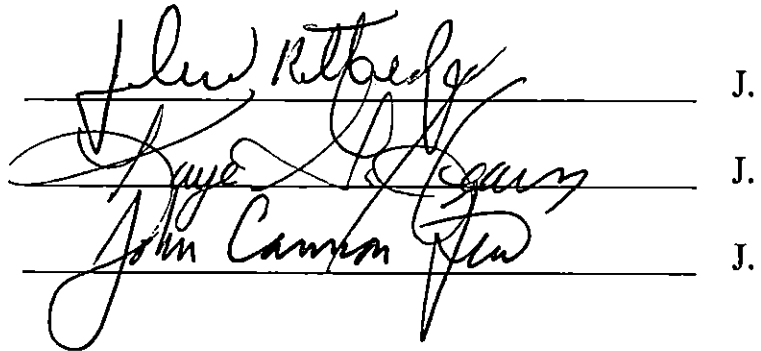 John Kittredge J.
Kaye G. Hearn J.
John Cannon Few J.